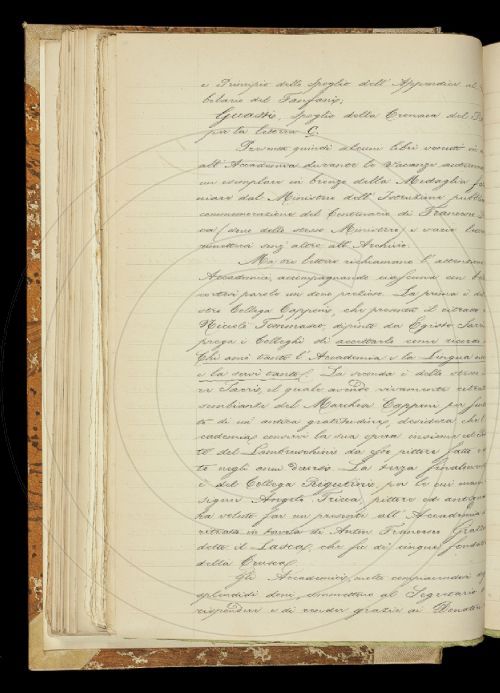 e Principio dello spoglio dell'Appendice al
bolario del Fanfani;
Guasti, spoglio della Cronaca del
per la lettera C.
Presenta quindi alcuni libri venuti in
all'Accademia durante le vacanze autunnali
un esemplare in bronzo della Medaglia
niare dal Ministro dell'Istruzione pubbli
commemorazione del Centenario di Francesco
ca, dono dello stesso Ministero; e varie
metterà senz'altro all'Archivio.
Ma tre lettere richiamano l'attenzione
Accademia, accompagnando ciascuna con
cortesi parole un dono prezioso. La prima è del
stro Collega Capponi, che presenta il ritratto
Niccolò Tommaseo, dipinto da Egisto Sarri
prega i Colleghi di accettarlo come ricordo
Chi amò tanto l'Accademia e la Lingua
e la servì tanto. La seconda è dello stesso
il quale avendo vivamente
sembianze del Marchese Capponi
te di un'antica gratitudine, desidera che l'
cademia conservi la sua opera insieme col
to del Lambruschini da esso pittore fatto
to negli anni decorsi. La terza finalmente
è del Collega Rigutini, per la cui mano
signor Angelo Tricca, pittore ed antiquario
ha voluto far un presente all'Accademia
ritratto in tavola di Anton Francesco Grazzi
detto il Lasca, che fu dei cinque fondatori
della Crusca.
Gli Accademici, molto compiacendosi
splendidi doni, commettono al Segretario
rispondere e di render grazie ai Donatori